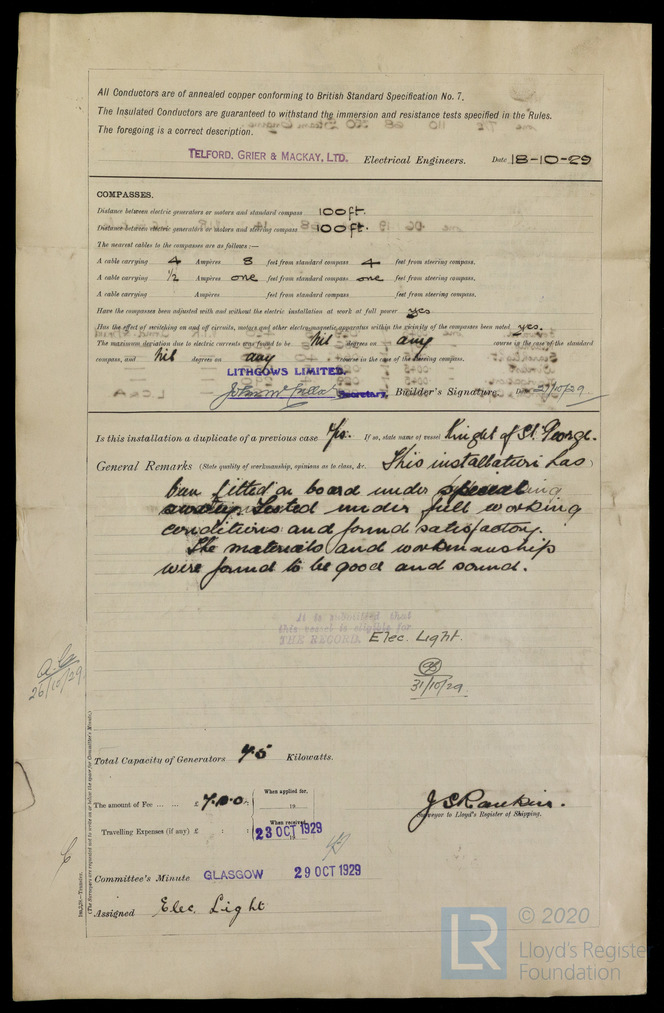 All Conductors are of annealed copper conforming to British Standard Specification No. 7.
The Insulated Conductors are guaranteed to withstand the immersion and resistance tests specified in the Rules.
The foregoing is a correct description.
TELFORD, GRIER & MACKAY, LTD. Electrical Engineers. Date 18-10-29
COMPASSES.
Distance between electric generators or motors and standard compass 100ft.
Distance between electric generators or motors and steering compass 100ft.
The nearest cables to the compasses are as follows:—
A cable carrying 4 Ampères 8 feet from standard compass 4 feet from steering compass.
A cable carrying 1/2 Ampères one feet from standard compass one feet from steering compass.
A cable carrying Ampères feet from standard compass feet from steering compass.
Have the compasses been adjusted with and without the electric installation at work at full power yes
Has the effect of switching on and off circuits, motors and other electro-magnetic apparatus within the vicinity of the compasses been noted yes.
The maximum deviation due to electric currents was found to be Nil degrees on any course in the case of the standard
compass, and Nil degrees on any course in the case of the steering compass.
LITHGOWS LIMITED.
Secretary. Builder's Signature. Date 21/10/29
Is this installation a duplicate of a previous case Yes. If so, state name of vessel Knight of St. George.
General Remarks (State quality of workmanship, opinions as to class, &c. This installation has
been fitted on board under special
survey tested under full working
conditions and found satisfactory.
The materials and workmanship
were found to be good and sound.
It is submitted that
this vessel is eligible for
THE RECORD. Elec. Light.
31/10/29.
26/10/29
Total Capacity of Generators 7.5 Kilowatts.
The amount of Fee ... ... £ 7.0.0 When applied for, 19
Travelling Expenses (if any) £ : : When received, 19
23 OCT 1929
J S Rankin.
Surveyor to Lloyd's Register of Shipping.
Committee's Minute GLASGOW 29 OCT 1929
Assigned Elec. Light
(The Surveyors are requested not to write on or below the space for Committee's Minute.)
LR
© 2020
Lloyd's Register
Foundation